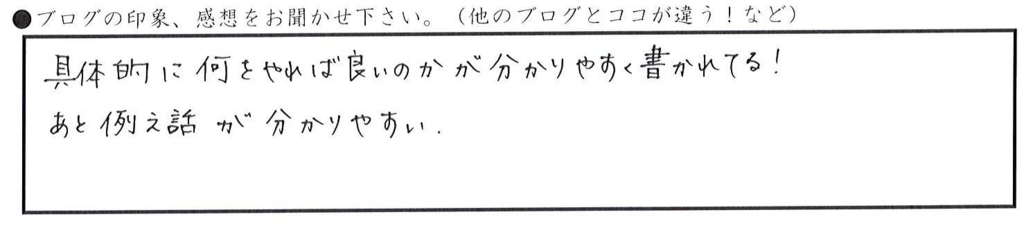 ●ブログの印象、感想をお聞かせ下さい。（他のブログとココが違う！など）
具体的に何をやれば良いのかが分かりやすく書かれてる！
あと例え話が分かりやすい.